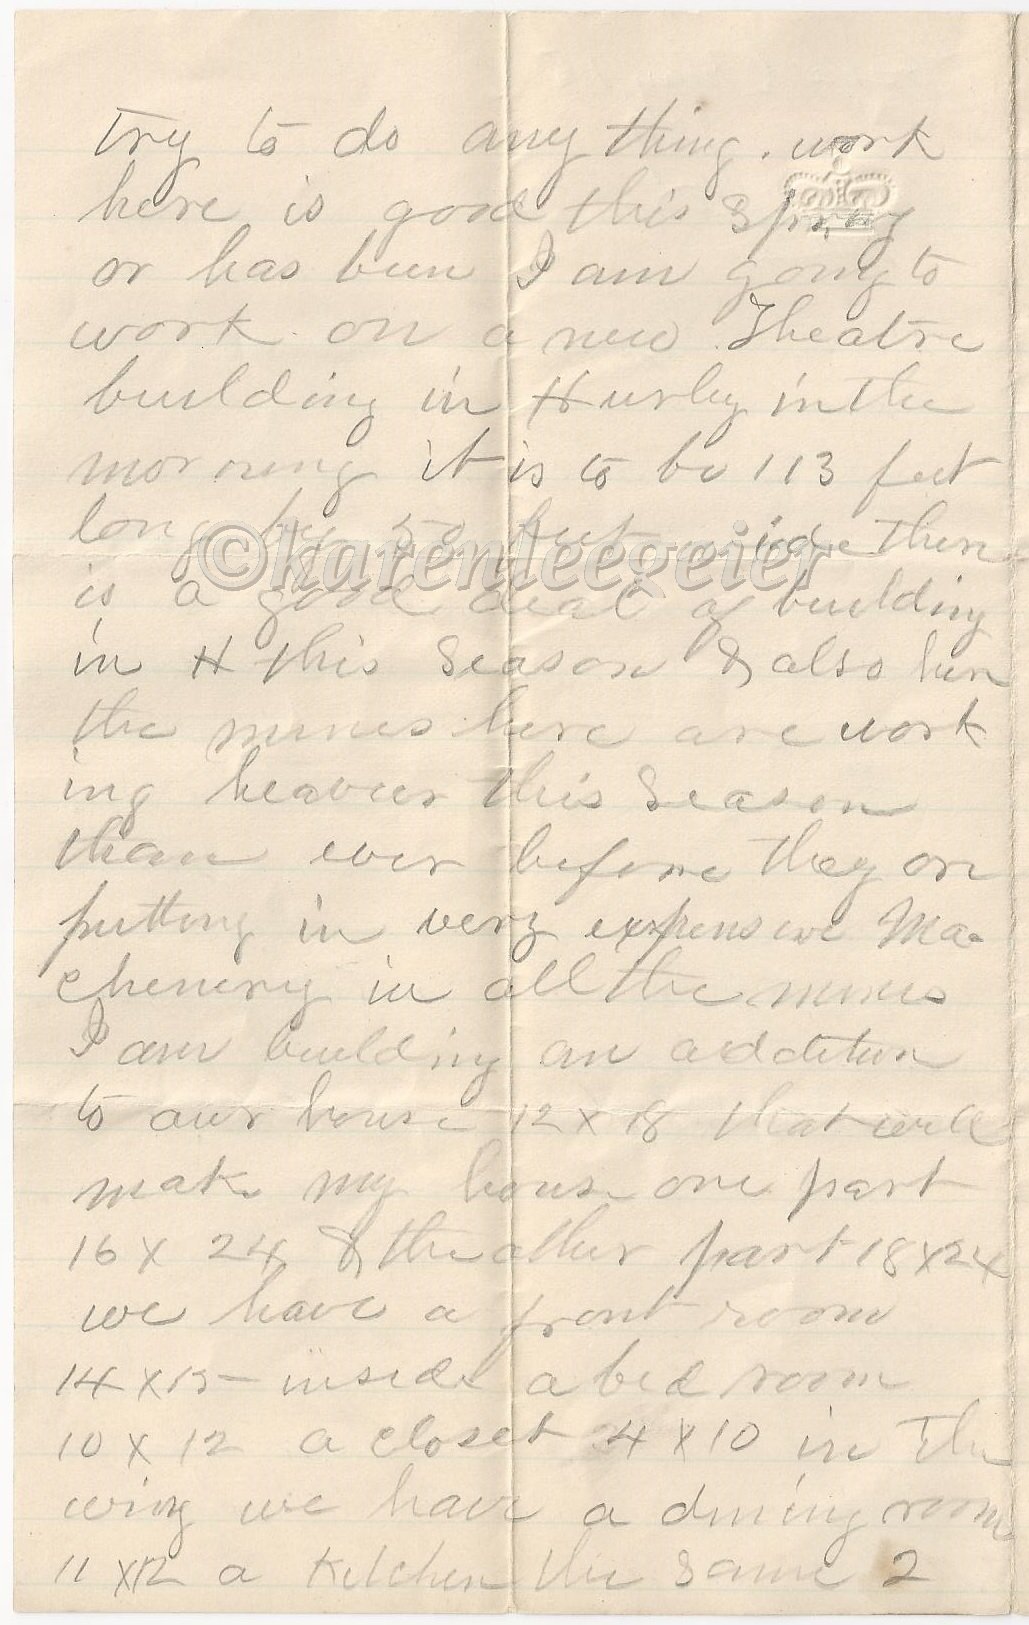 try to do any thing. work
here is good this Spring
or has been I am going to
work on a new Theatre
building in Hurley in the
morning it is to be 113 feet
long by 50 feet wide there
©karenleegeier
is a good deal of building
in H this Season & also here
the mines here are work
ing heavier this Season
than ever before they are
putting in very expensive Ma-
chenery in all the mines
I am building an addition
to our house 12 x 18 that will
make my house one part
16 x 24 & the other part 18 x 24
we have a front room
14 x 15 - inside a bed room
10 x 12 a closet 4 x 10 in the
wing we have a dining room
11 x 12 a Kitchen the Same 2